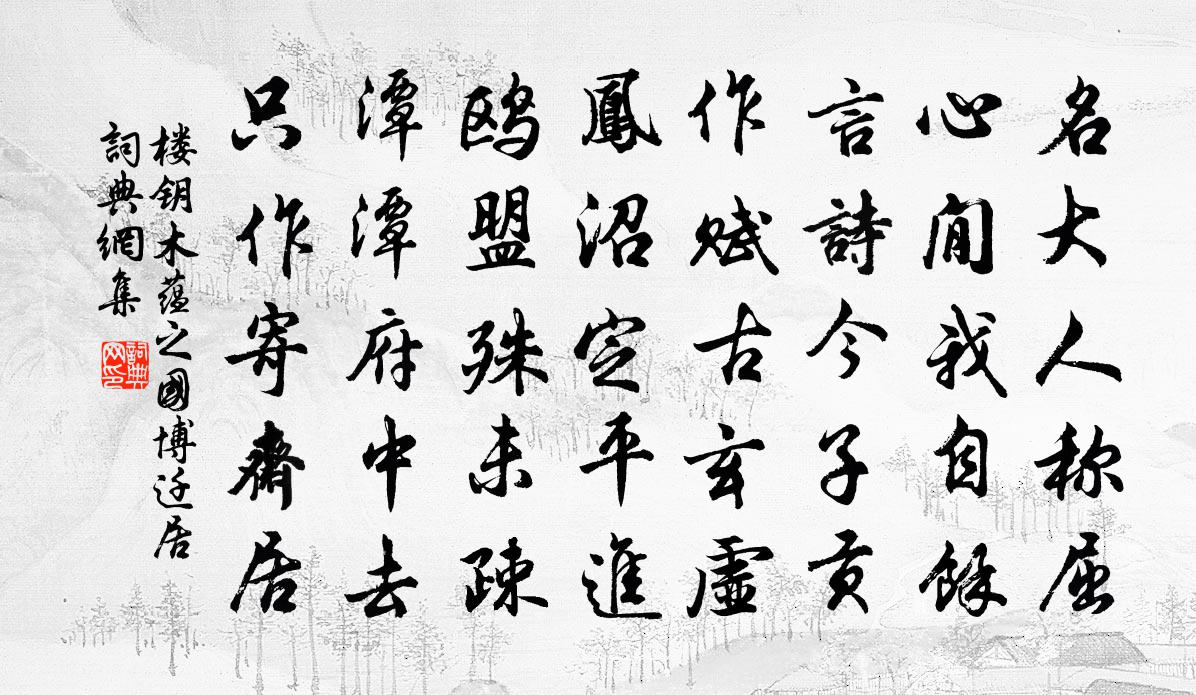 名大人称屈
心闲我自餘
言詩今子貢
作赋古玄虛
鳳沼定平進
鸥盟殊未疎
潭潭府中去
只作寄齋居
楼钥木蕴之國博迁居
詞典網集
詞典网印